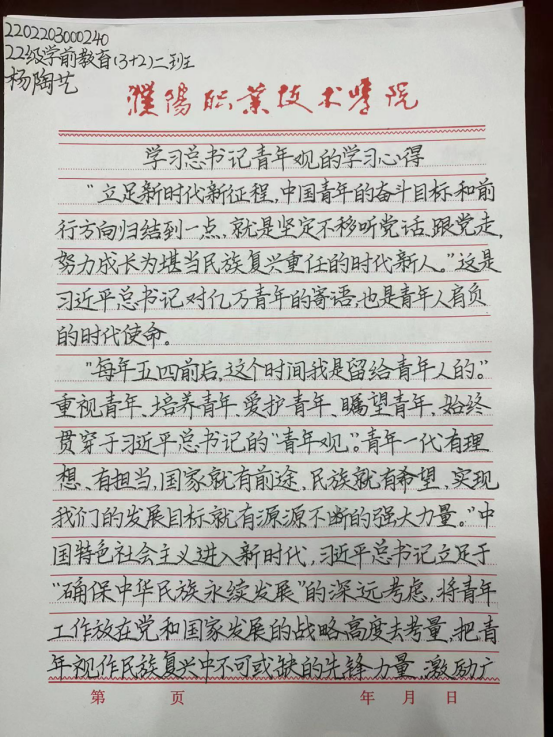 2202203000240
22级学前教育(3+2)二班
杨陶艺
濮阳职业技术学院
学习总书记青年观的学习心得
“立足新时代新征程,中国青年的奋斗目标和前
行方向归结到一点,就是坚定不移听党话、跟党走,
努力成长为堪当民族复兴重任的时代新人。”这是
习近平总书记对亿万青年的寄语,也是青年人肩负
的时代使命。
“每年五四前后,这个时间我是留给青年人的。”
重视青年、培养青年、爱护青年、瞩望青年,始终
贯穿于习近平总书记的“青年观”。青年一代有理
想、有担当,国家就有前途,民族就有希望,实现
我们的发展目标就有源源不断的强大力量。”中
国特色社会主义进入新时代,习近平总书记立足于
“确保中华民族永续发展”的深远考虑,将青年
工作放在党和国家发展的战略高度去考量,把青
年视作民族复兴中不可或缺的先锋力量,激励广
第 页 年 月 日